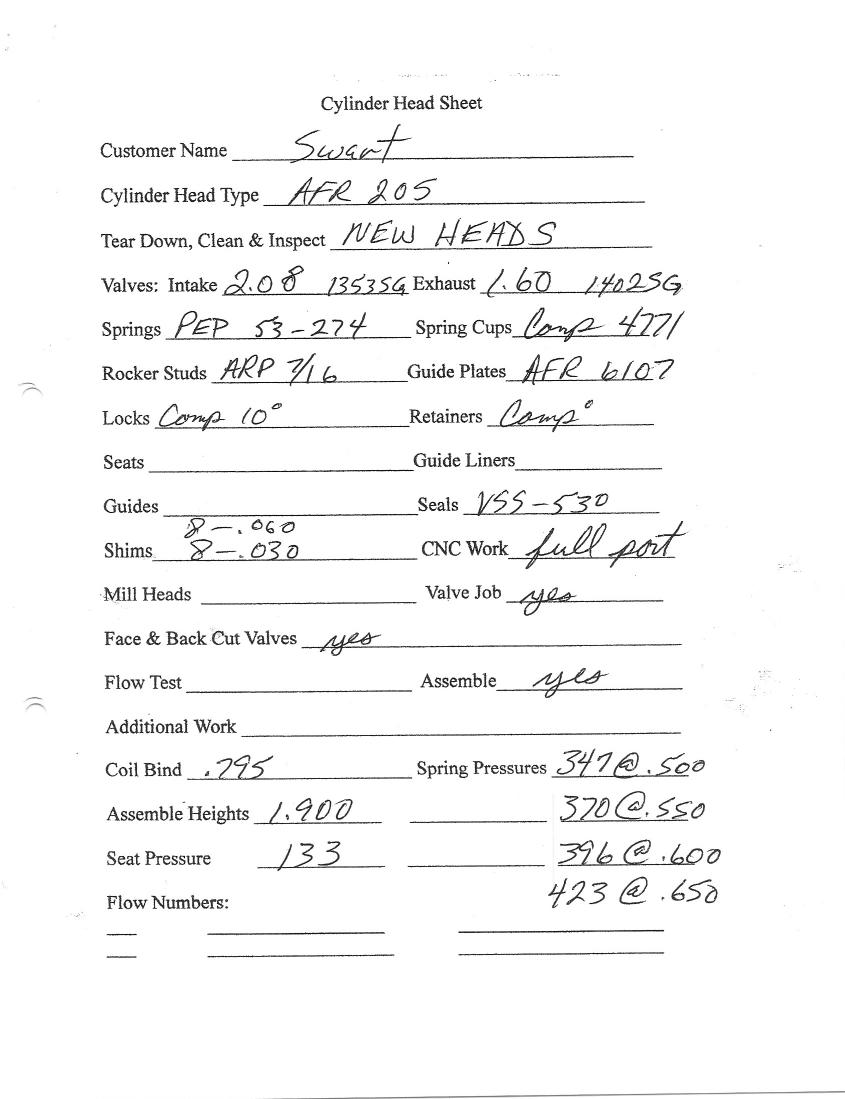 Cylinder Head Sheet
Customer Name Swart
Cylinder Head Type AFR 205
Tear Down, Clean & Inspect NEW HEADS
Valves: Intake 2.08 1353SG Exhaust 1.60 1402SG
Springs PEP 53-274 Spring Cups Comp 4771
Rocker Studs ARP 7/16 Guide Plates AFR 6107
Locks Comp 10° Retainers Comp°
Seats Guide Liners
Guides Seals VSS-530
8-.060
Shims 8-.030 CNC Work full port
Mill Heads Valve Job yes
Face & Back Cut Valves yes
Flow Test Assemble yes
Additional Work
Coil Bind .795 Spring Pressures 347@.500
Assemble Heights 1.900 370@.550
Seat Pressure 133 396@.600
Flow Numbers: 423@.650